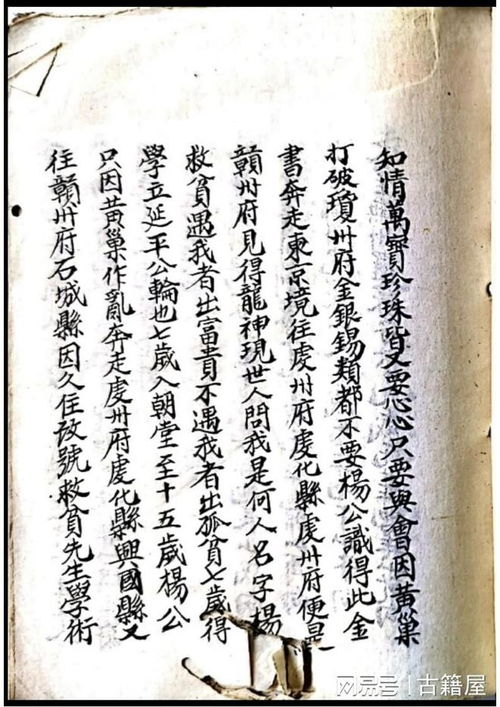 知情萬寶珍珠皆又要心心只要與會因黃巢
打破瓊州府金銀錫類都不要楊公識得此金
書奔走東京境往虔州府虔化縣虔州府便是
贛州府見得龍神現世人問我是何人名字楊
救貧遇我者出富貴不遇我者出孤貧七歲得
學立延平公輪也七歲入朝堂至十五歲楊公
只因黃巢作亂奔走虔州府虔化縣興國縣又
往贛州府石城縣因久住改號救貧先生學術
网易号 | 古籍屋